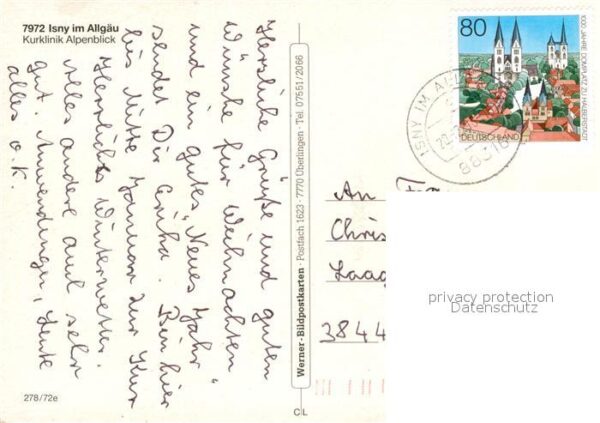 7972 Isny im Allgäu
Kurklinik Alpenblick
Herzliche Grüße und guten
Wünsche für Weihnachten
und ein gutes "Neues Jahr"
sendet Dir Bin hier
bis Mitte Januar zur Kur
Herrliches Winterwetter.
Alles andere auch sehr
gut. Anwendungen, Leute
alles o.K.
278/72e
Werner-Bildpostkarten · Postfach 1623 · 7770 Überlingen · Tel. 07551/2066
CL
80
1000 JAHRE DOMPLATZ ZU HALBERSTADT
DEUTSCHLAND
ISNY IM
88316
An
Chris
Laag
3844
privacy protection
Datenschutz